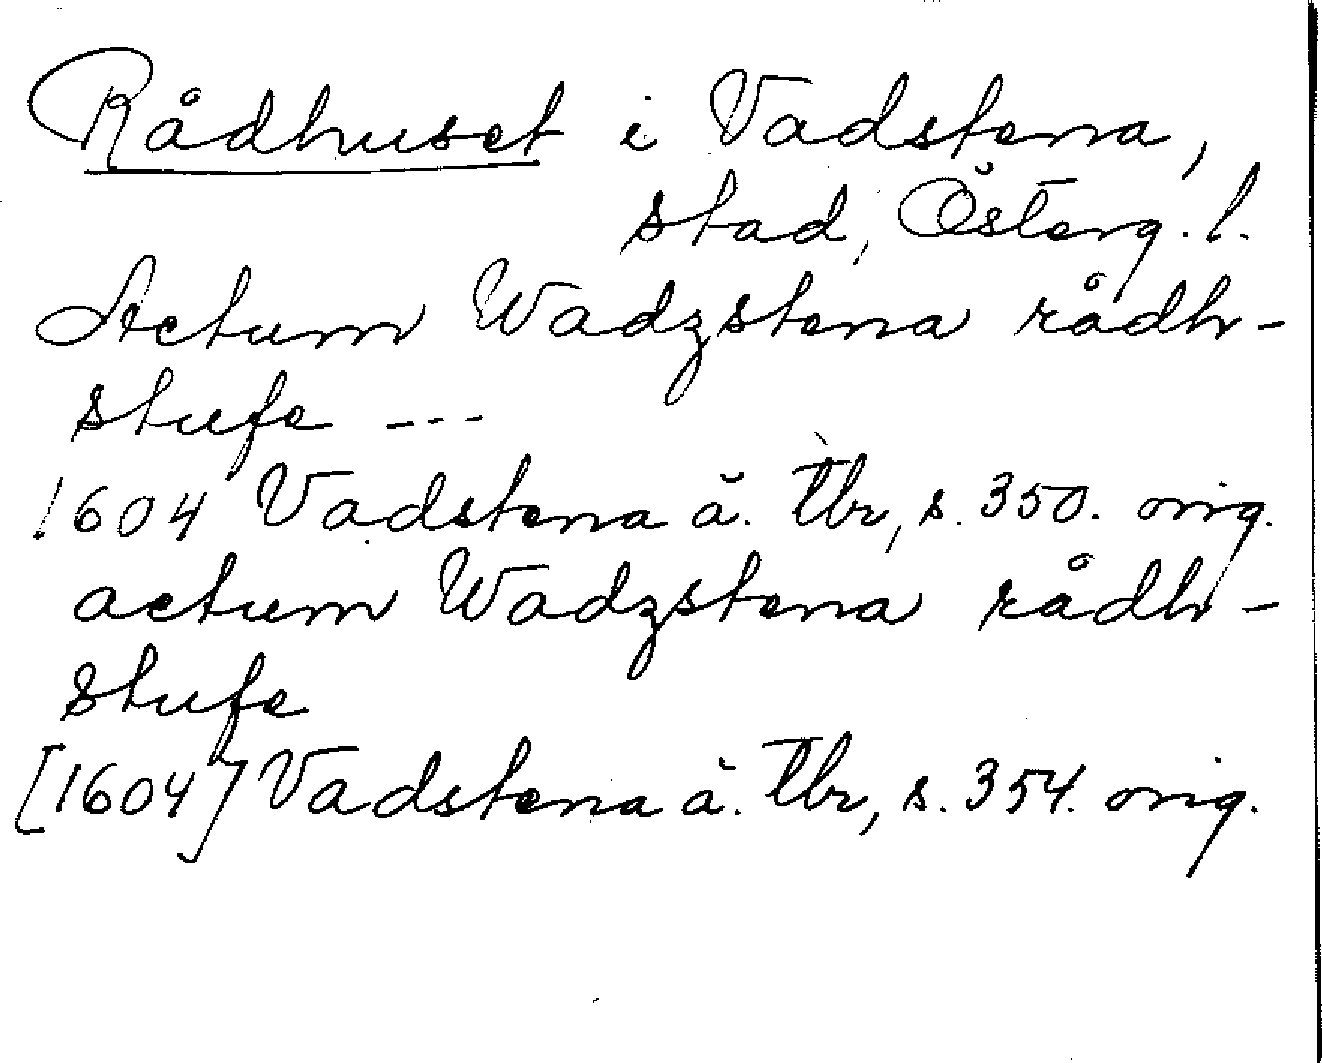 Rådhuset i Vadstena,
stad, Österg. l.
Actum Wadzstena rådh-
stufe ---
1604 Vadstena ä. Tbr, s. 350. orig.
actum Wadzstena rådh-
stufe
[1604] Vadstena ä. Tbr, s. 354. orig.